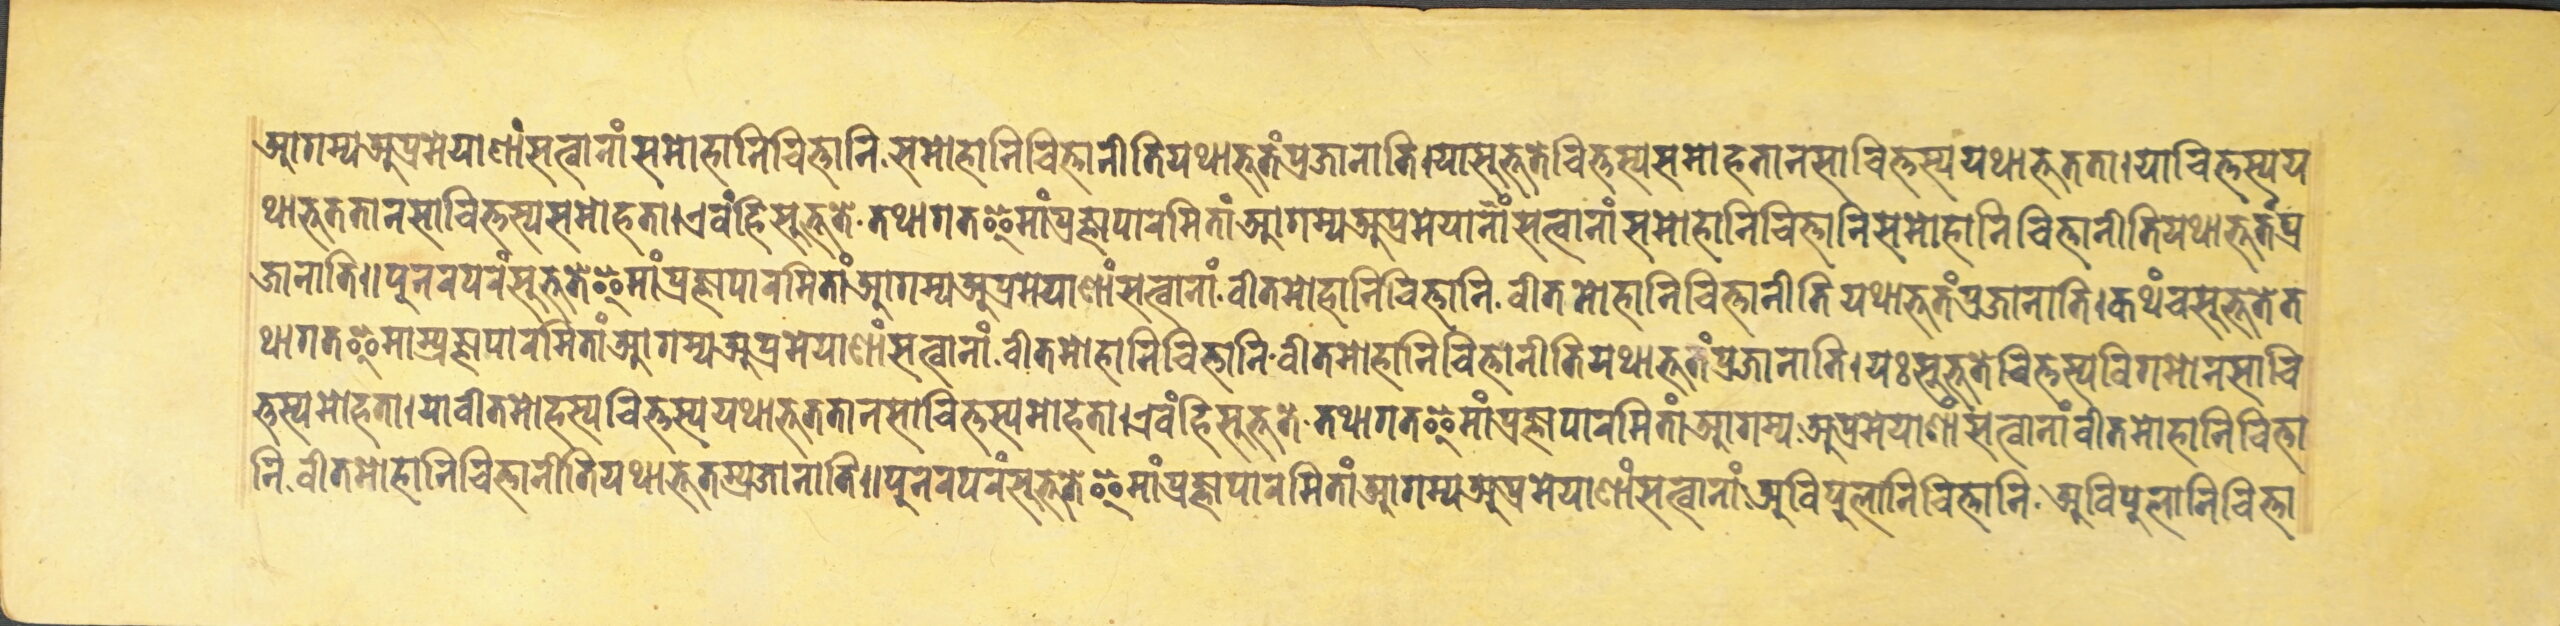 आगम्यअप्रमेयाणांसत्वानांसमोहानिचित्तानि.समोहानिचित्तानीतियथाभूतंप्रजानाति।यासुभूतेचित्तस्यसमोहतानसाचित्तस्ययथाभूतता।याचित्तस्यय
थाभूततानसाचित्तस्यसमोहता।एवंहिसुभूते.तथागतइमांप्रज्ञापारमितांआगम्यअप्रमेयानांसत्वानांसमोहानिचित्तानिसमोहानिचित्तानीतियथाभूतंप्र
जानाति॥पुनरपरंसुभूतेइमांप्रज्ञापारमितांआगम्यअप्रमेयाणांसत्वानां.वीतमोहानिचित्तानि.वीतमोहानिचित्तानीतियथाभूतंप्रजानाति।कथंचसुभूतेत
थागतइमाम्प्रज्ञापारमितांआगम्यअप्रमेयाणांसत्वानां.वीतमोहानिचित्तानि.वीतमोहानिचित्तानीतियथाभूतंप्रजानाति।यःसुभूतेचित्तस्यविगमोनसाचि
त्तस्यमोहता।यावीतमोहस्यचित्तस्ययथाभूततानसाचित्तस्यमोहता।एवंहिसुभूते.तथागतइमांप्रज्ञापारमितांआगम्य.अप्रमेयाणांसत्वानांवीतमोहानिचित्ता
नि.वीतमोहानिचित्तानीतियथाभूतम्प्रजानाति॥पुनरपरंसुभूतेइमांप्रज्ञापारमितांआगम्यअप्रमेयाणांसत्वानां.अविपुलानिचित्तानि.अविपुलानिचित्ता